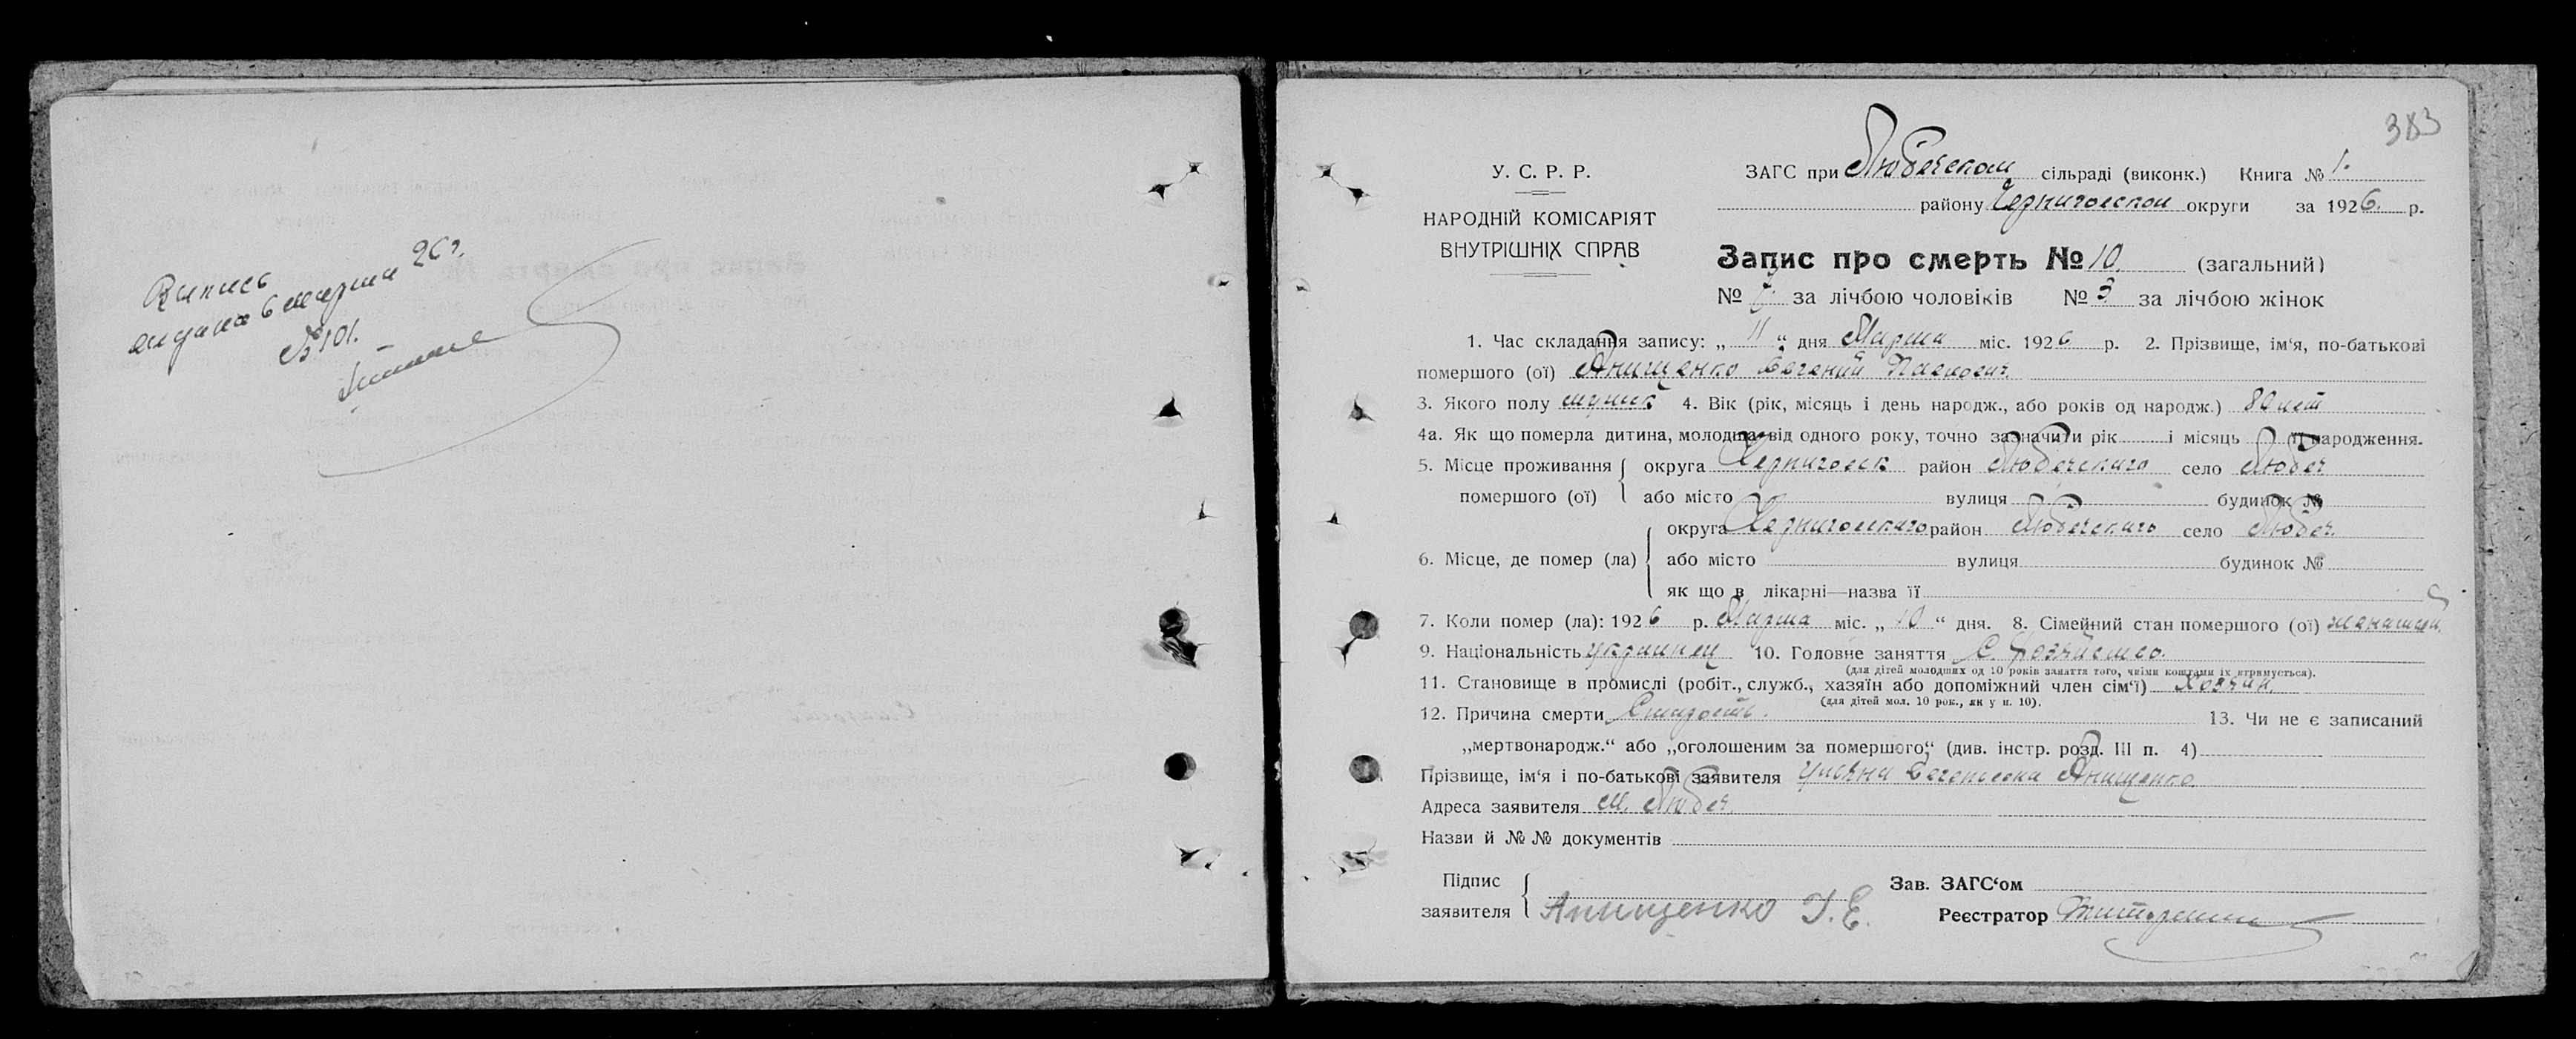 Выпись
выдана 6 марта 26 г.
№ 101.
383
У. С. Р. Р.
НАРОДНІЙ КОМІСАРІЯТ
ВНУТРІШНІХ СПРАВ
ЗАГС при Любечском сільраді (виконк.) Книга № 1.
району Черниговской округи за 1926. р.
Запис про смерть № 10. (загальний)
№ за лічбою чоловіків № 3 за лічбою жінок
1. Час складання запису: „ 11 “ дня Марта міс. 1926 р. 2. Прізвище, ім‘я, по-батькові
помершого (ої) Анищенко Евгений Павлович.
3. Якого полу мужск 4. Вік (рік, місяць і день народж., або років од народж.) 80 лет
4а. Як що померла дитина, молодша від одного року, точно зазначити рік і місяць її народження.
5. Місце проживання округа Черниговск район Любечского село Любеч
помершого (ої) або місто вулиця будинок №
округа Черниговского район Любечского село Любеч.
6. Місце, де помер (ла) або місто вулиця будинок №
як що в лікарні—назва її
7. Коли помер (ла): 1926 р. Марта міс. „ 10 “ дня. 8. Сімейний стан помершого (ої) женатый.
9. Національність украинец 10. Головне заняття С. Хозяйство.
(для дітей молодших од 10 років заняття того, чиїми коштами їх втримується).
11. Становище в промислі (робіт., служб., хазяїн або допоміжний член сім‘ї) Хозяин.
(для дітей мол. 10 рок., як у п. 10).
12. Причина смерти Старость. 13. Чи не є записаний
„мертвонародж.“ або „оголошеним за помершого“ (див. інстр. розд. III п. 4)
Прізвище, ім‘я і по-батькові заявителя Ульяна Евгеньевна Анищенко.
Адреса заявителя м. Любеч.
Назви й № № документів
Підпис
заявителя Анищенко У. Е.
Зав. ЗАГС‘ом
Реєстратор